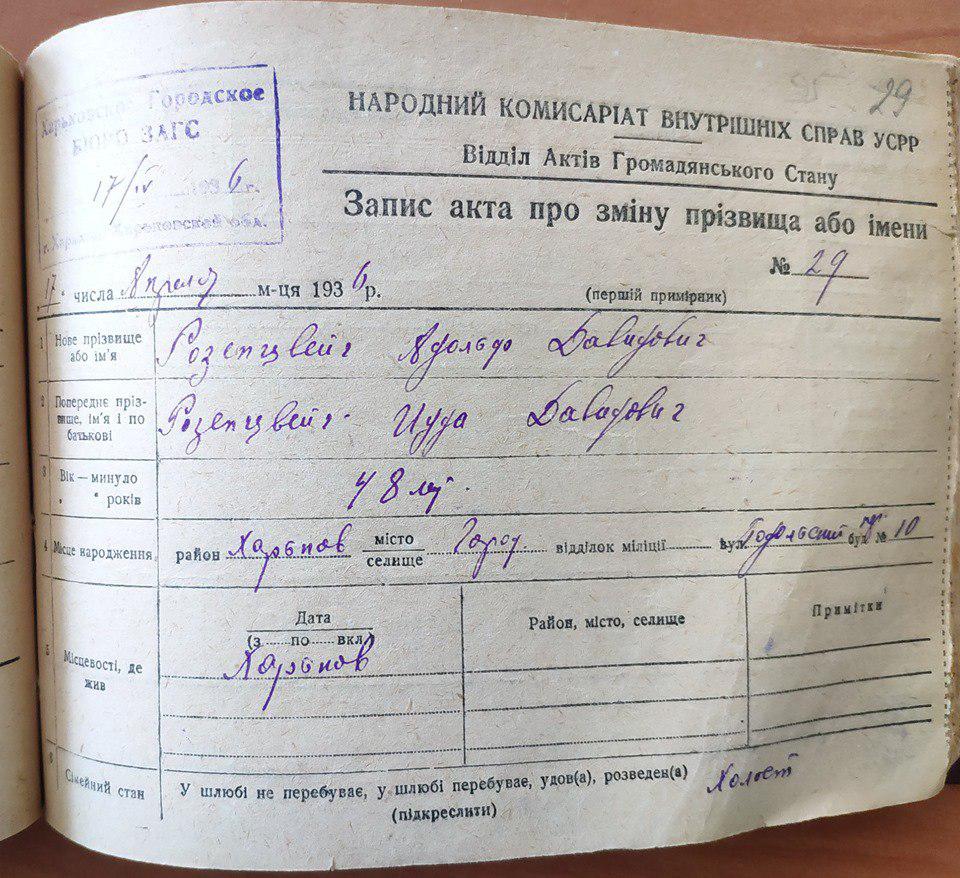 29
Харьковское Городское
БЮРО ЗАГС
17/IV 1936 г.
г. Харьков, Харьковской обл.
НАРОДНИЙ КОМИСАРІАТ ВНУТРІШНІХ СПРАВ УСРР
Відділ Актів Громадянського Стану
Запис акта про зміну прізвища або імени
№ 29
17 числа Апреля м-ця 1936 р.
(перший примірник)
1 Нове прізвище або ім'я Розенцвейг Адольф Давидович
2 Попереднє пріз-
вище, ім'я і по
батькові Розенцвейг Иуда Давидович
3 Вік — минуло
„ “ років 48 лет.
4 Місце народження район Харьков місто
селище Город відділок міліції вул. буд. № 10
Дата
(з ... по ... вкл.)
Район, місто, селище
Примітки
5 Місцевості, де
жив Харьков
6 Сімейний стан У шлюбі не перебуває, у шлюбі перебуває, удов(а), розведен(а) Холост
(підкреслити)